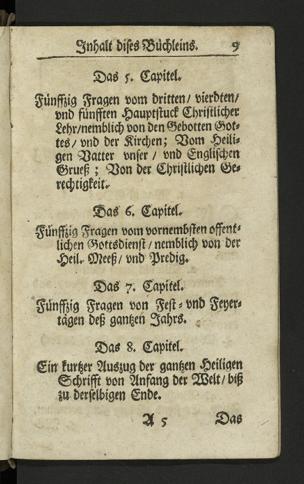 Inhalt dises Büchleins. 9
Das 5. Capitel.
Fünffzig Fragen vom dritten/ vierdten/
vnd fünfften Hauptstuck Christlicher
Lehr/nemblich von den Gebotten Got-
tes/ vnd der Kirchen; Vom Heili-
gen Vatter vnser/ vnd Englischen
Grueß; Von der Christlichen Ge-
rechtigkeit.
Das 6. Capitel.
Fünffzig Fragen vom vornembsten offent-
lichen Gottsdienst/ nemblich von der
Heil. Meeß/ vnd Predig.
Das 7. Capitel.
Fünffzig Fragen von Fest- vnd Feyer-
tägen deß gantzen Jahrs.
Das 8. Capitel.
Ein kurtzer Auszug der gantzen Heiligen
Schrifft von Anfang der Welt/ biß
zu derselbigen Ende.
A 5 Das